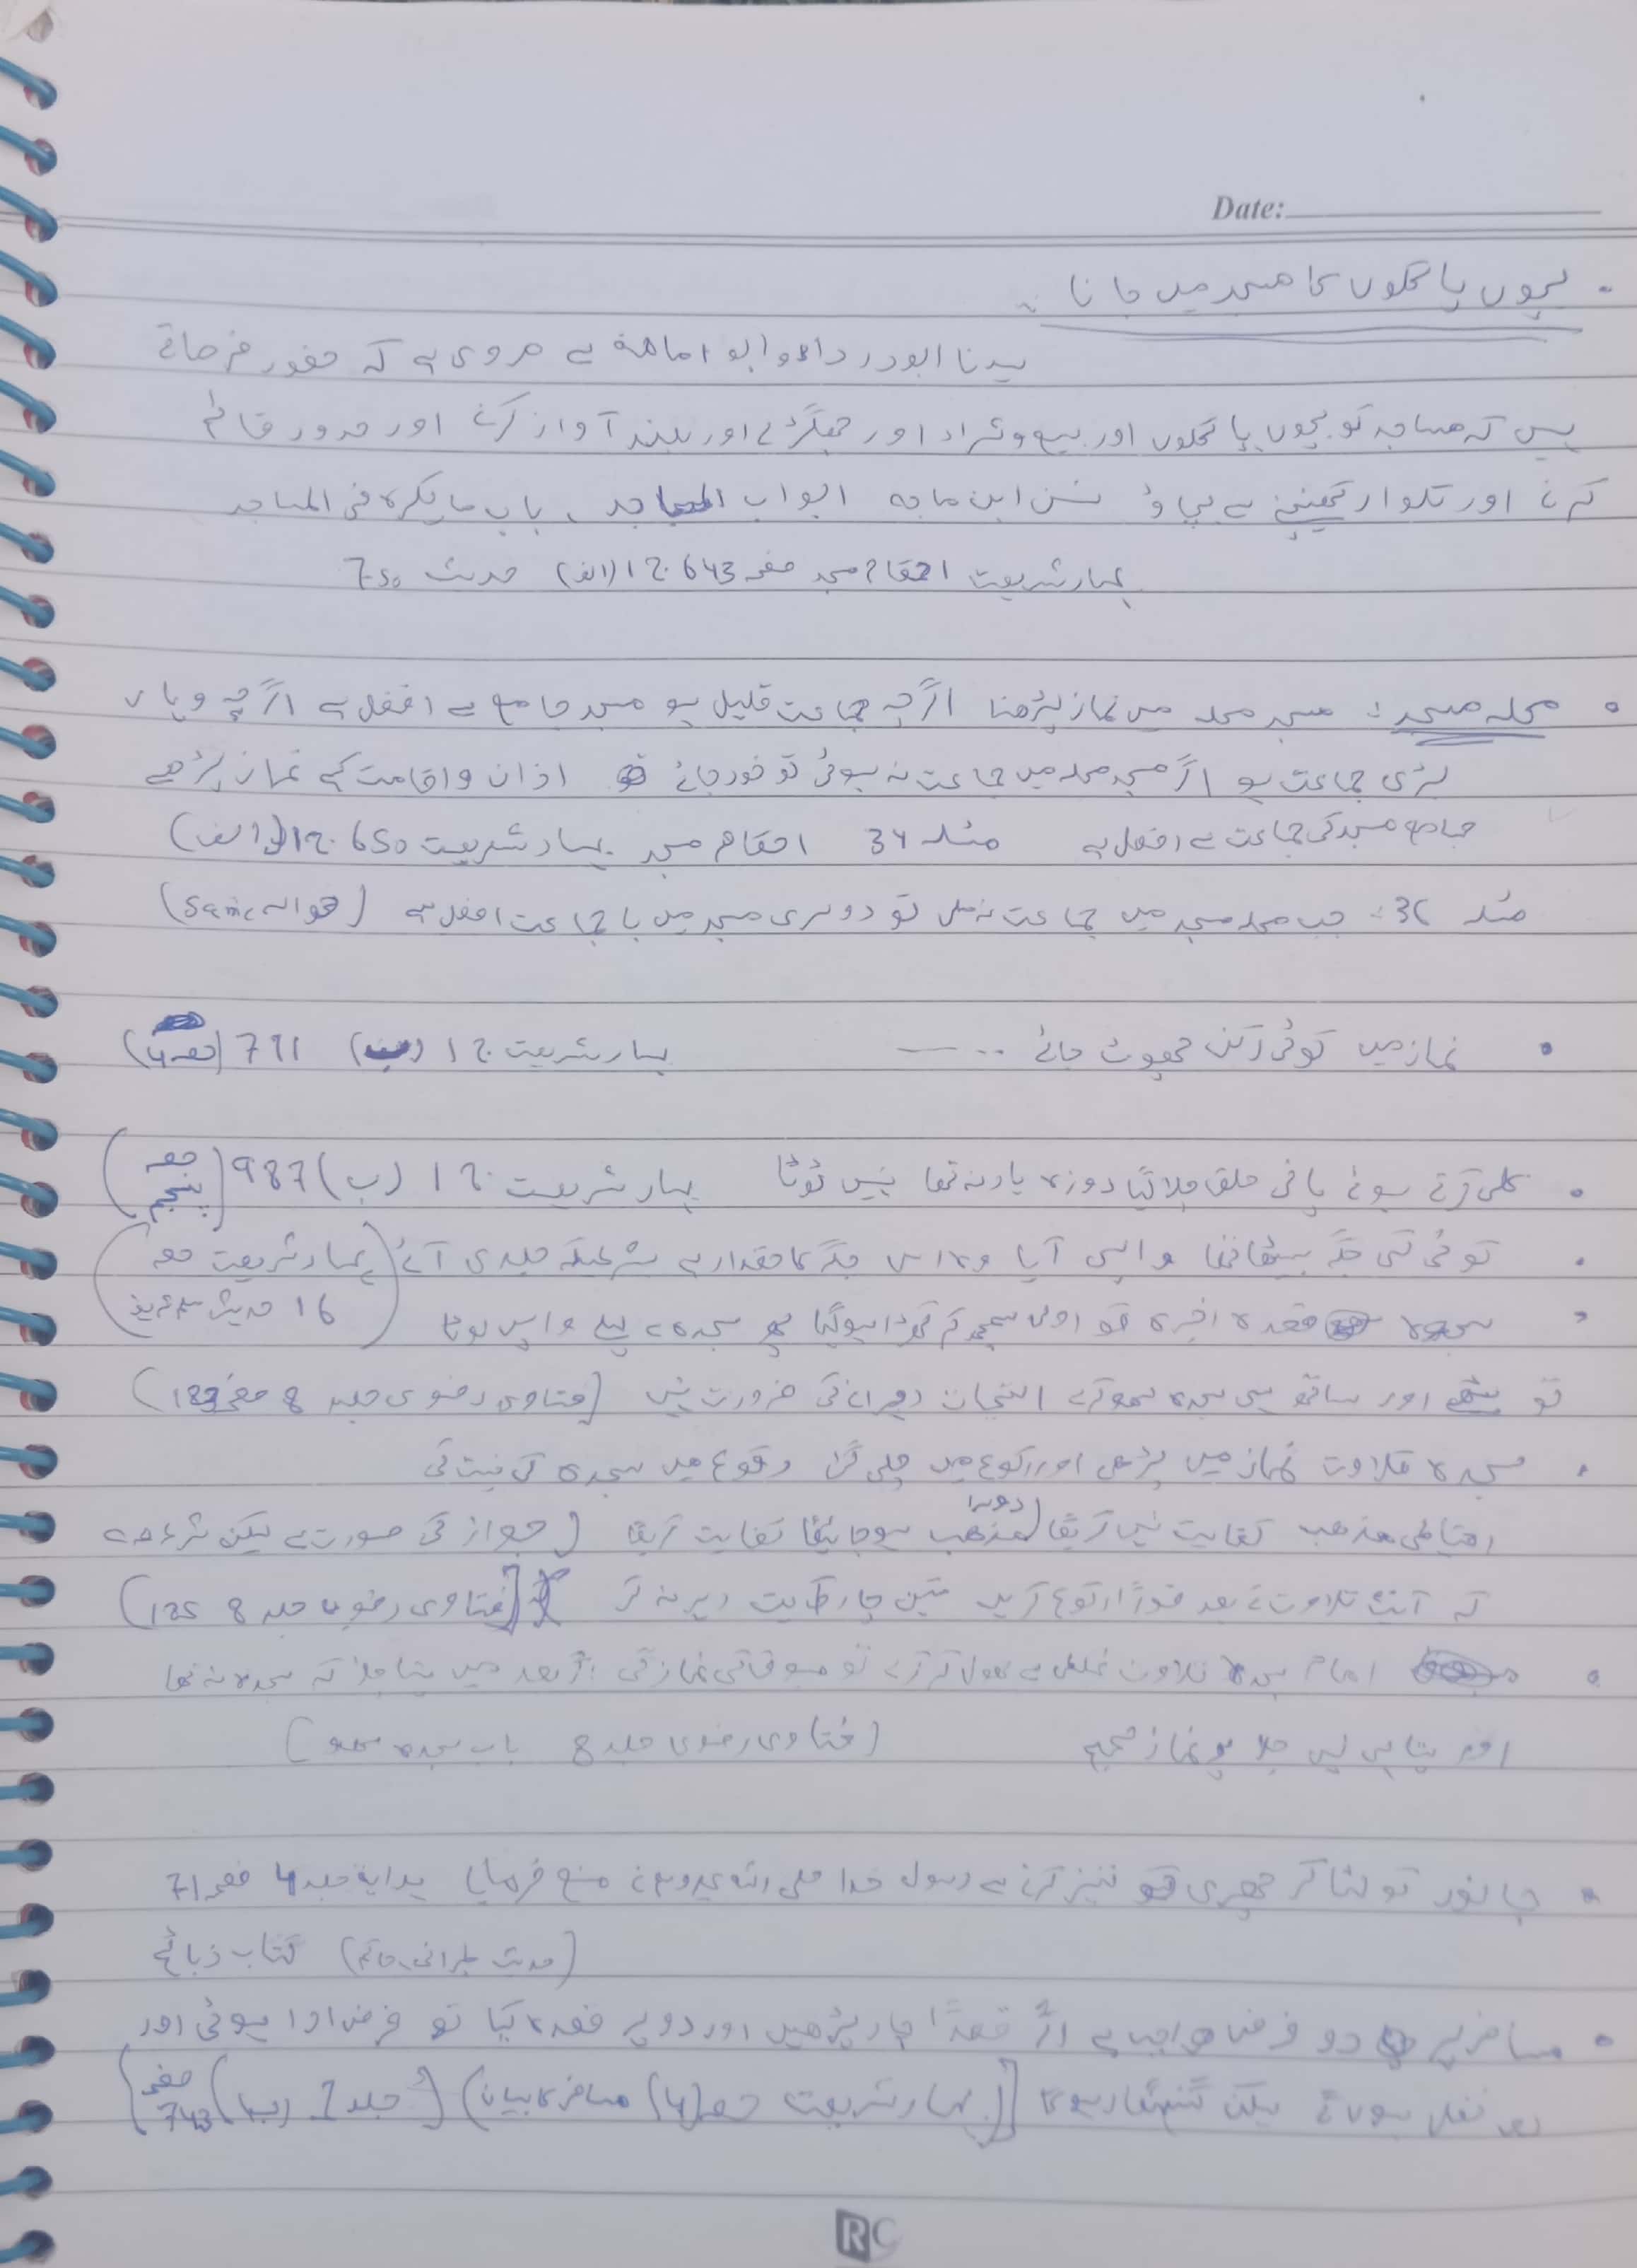 Date:
• بچوں پاگلوں کا مسجد میں جانا :
سیدنا ابودرداء و ابو امامۃ سے مروی ہے کہ حضور فرماتے
ہیں کہ مساجد کو بچوں پاگلوں اور بیع و شراء اور جھگڑے اور بلند آواز کرنے اور حدود قائم
کرنے اور تلوار کھینچنے سے بچاؤ سنن ابن ماجہ ابواب المساجد، باب ما یکرہ فی المساجد
بہار شریعت احکام مسجد صفحہ 643 ج 1 (الف) حدیث 750
• محلہ مسجد : مسجد محلہ میں نماز پڑھنا اگرچہ جماعت قلیل ہو مسجد جامع سے افضل ہے اگرچہ وہاں
بڑی جماعت ہو اگر مسجد محلہ میں جماعت نہ ہوئی تو خود جائے اذان و اقامت کہے نماز پڑھے
جامع مسجد کی جماعت سے افضل ہے مسئلہ 34 احکام مسجد بہار شریعت 650 ج 1 (الف)
مسئلہ 36 : جب محلہ مسجد میں جماعت نہ ملی تو دوسری مسجد میں با جماعت افضل ہے (حوالہ same)
• نماز میں کوئی رکن چھوٹ جائے ..... بہار شریعت ج 1 (ب) 791 (حصہ 4)
• کلی کرتے ہوئے پانی حلق چلا گیا روزہ یاد نہ تھا نہیں ٹوٹا بہار شریعت ج 1 (ب) 987 (حصہ پنجم)
• کوئی کسی جگہ بیٹھا تھا واپس آیا وہ اس جگہ کا حقدار ہے بشرطیکہ جلدی آئے (بہار شریعت حصہ
16 حدیث
• قعدہ اخیرہ کو اولی سمجھ کر کھڑا ہوگیا پھر سجدہ سے پہلے واپس لوٹا
تو بیٹھے اور ساتھ ہی سجدہ سہو کرے التحیات دہرانے کی ضرورت نہیں (فتاوی رضوی جلد 8 صفحہ 183)
• سجدہ تلاوت نماز میں پڑھی اور رکوع میں چلے گئے رکوع میں سجدہ کی نیت کی
احتیاطی مذہب کفایت نہیں کریگا (دوسرا مذہب ہو جائیگا کفایت کریگا (جواز کی صورت ہے لیکن شرط ہے
کہ آیت تلاوت کے بعد فوراً رکوع کریں تین چار آیت دیر نہ کر (فتاوی رضویہ جلد 8 185)
• امام سجدہ تلاوت غلطی سے بھول کر کرے تو مسبوق کی نماز گئی اگر بعد میں پتا چلا کہ سجدہ نہ تھا
اور پتا ہی نہیں چلا تو نماز صحیح (فتاوی رضوی جلد 8 باب سجدہ سہو)
• جانور کو لٹا کر چھری کو تیز کرنے سے رسول خدا صلی اللہ علیہ وسلم نے منع فرمایا ہدایۃ جلد 4 صفحہ 71
(حدیث طبرانی، حاکم) کتاب ذبائح
• مسافر پر دو فرض واجب ہے اگر قصداً چار پڑھیں اور دو پر قعدہ کیا تو فرض ادا ہوئی اور
بعد نفل ہوں گے لیکن گنہگار ہوگا [(بہار شریعت حصہ (4) مسافر کا بیان) (جلد 1 (ب) صفحہ 743)
RC